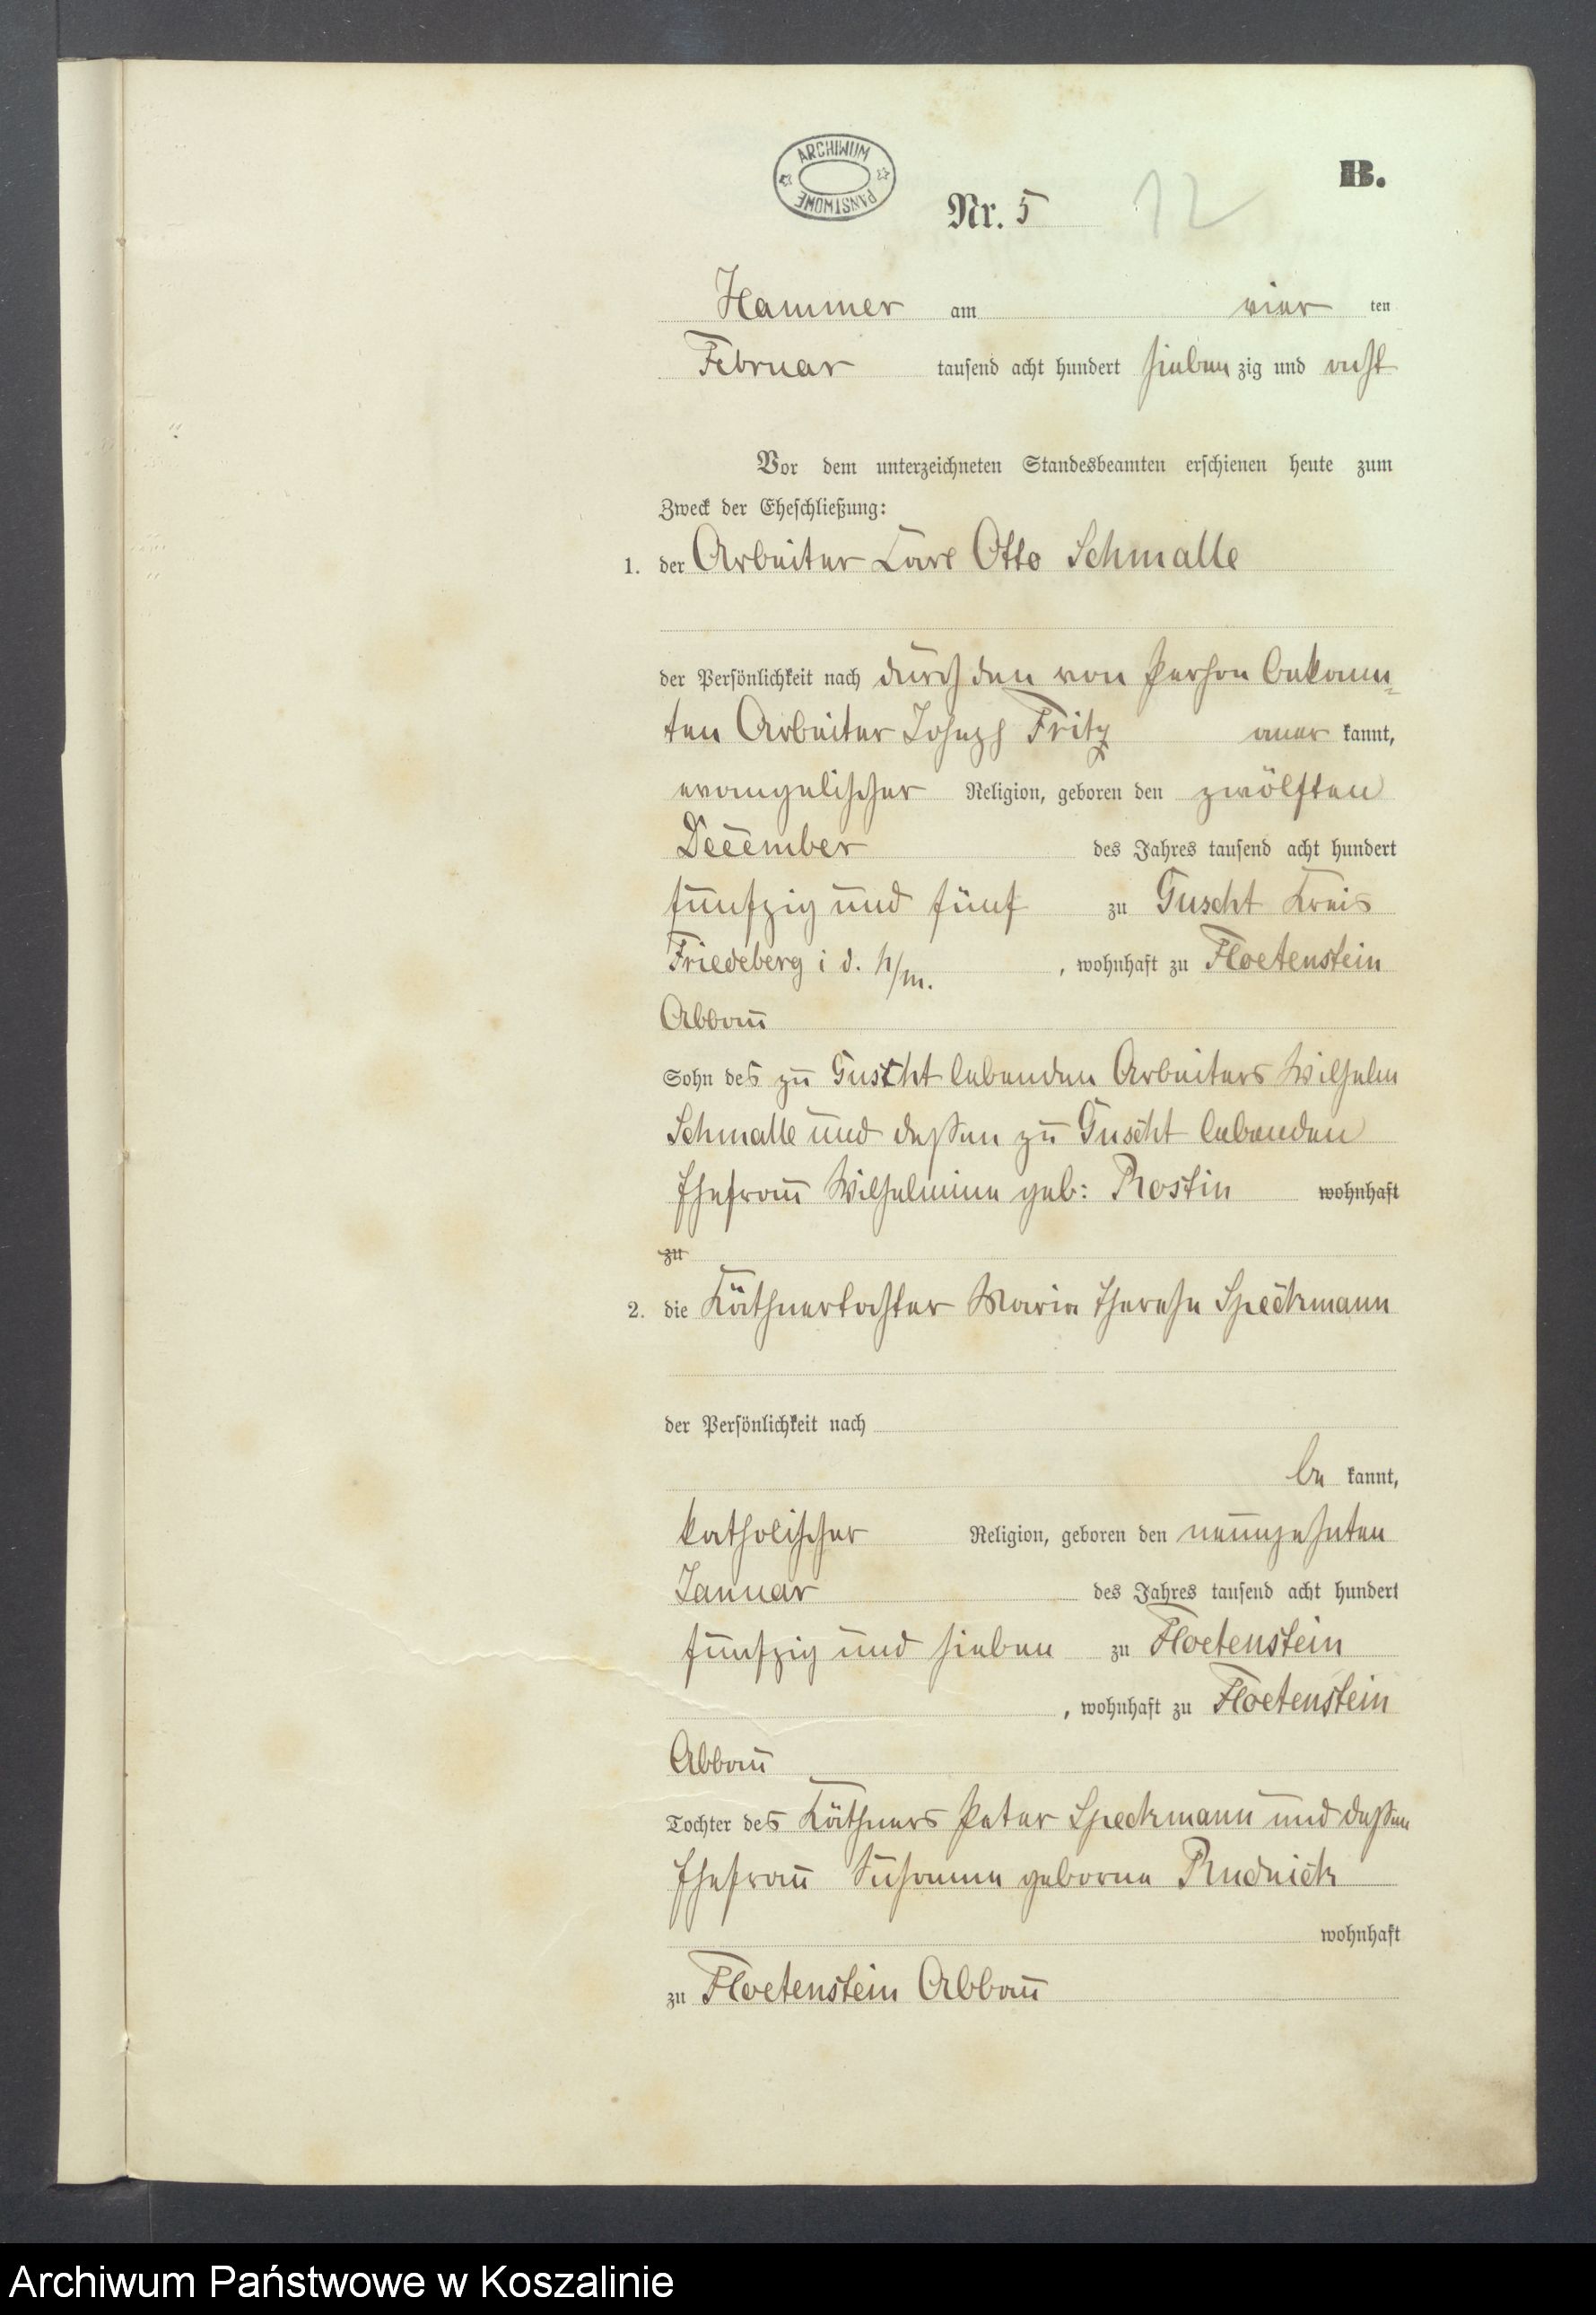 ARCHIWUM PAŃSTWOWE
B.
Nr. 5
12
Hammer am vier ten
Februar tausend acht hundert sieben zig und acht
Vor dem unterzeichneten Standesbeamten erschienen heute zum
Zweck der Eheschließung:
1. der Arbeiter Carl Otto Schmalle
der Persönlichkeit nach durch den von Person bekann=
ten Arbeiter Joseph Fritz aner kannt,
evangelischer Religion, geboren den zwölften
December des Jahres tausend acht hundert
fünfzig und fünf zu Guscht Kreis
Friedeberg i d. N/m. , wohnhaft zu Floetenstein
Abbau
Sohn des zu Guscht lebenden Arbeiters Wilhelm
Schmalle und deßen zu Guscht lebenden
Ehefrau Wilhelmine geb: Rostin wohnhaft
zu
2. die Käthnertochter Maria Therese Speckmann
der Persönlichkeit nach
be kannt,
katholischer Religion, geboren den neunzehnten
Januar des Jahres tausend acht hundert
fünfzig und sieben zu Floetenstein
, wohnhaft zu Floetenstein
Abbau
Tochter des Käthners Peter Speckmann und deßen
Ehefrau Susanna geborne Rudnick
wohnhaft
zu Floetenstein Abbau
Archiwum Państwowe w Koszalinie